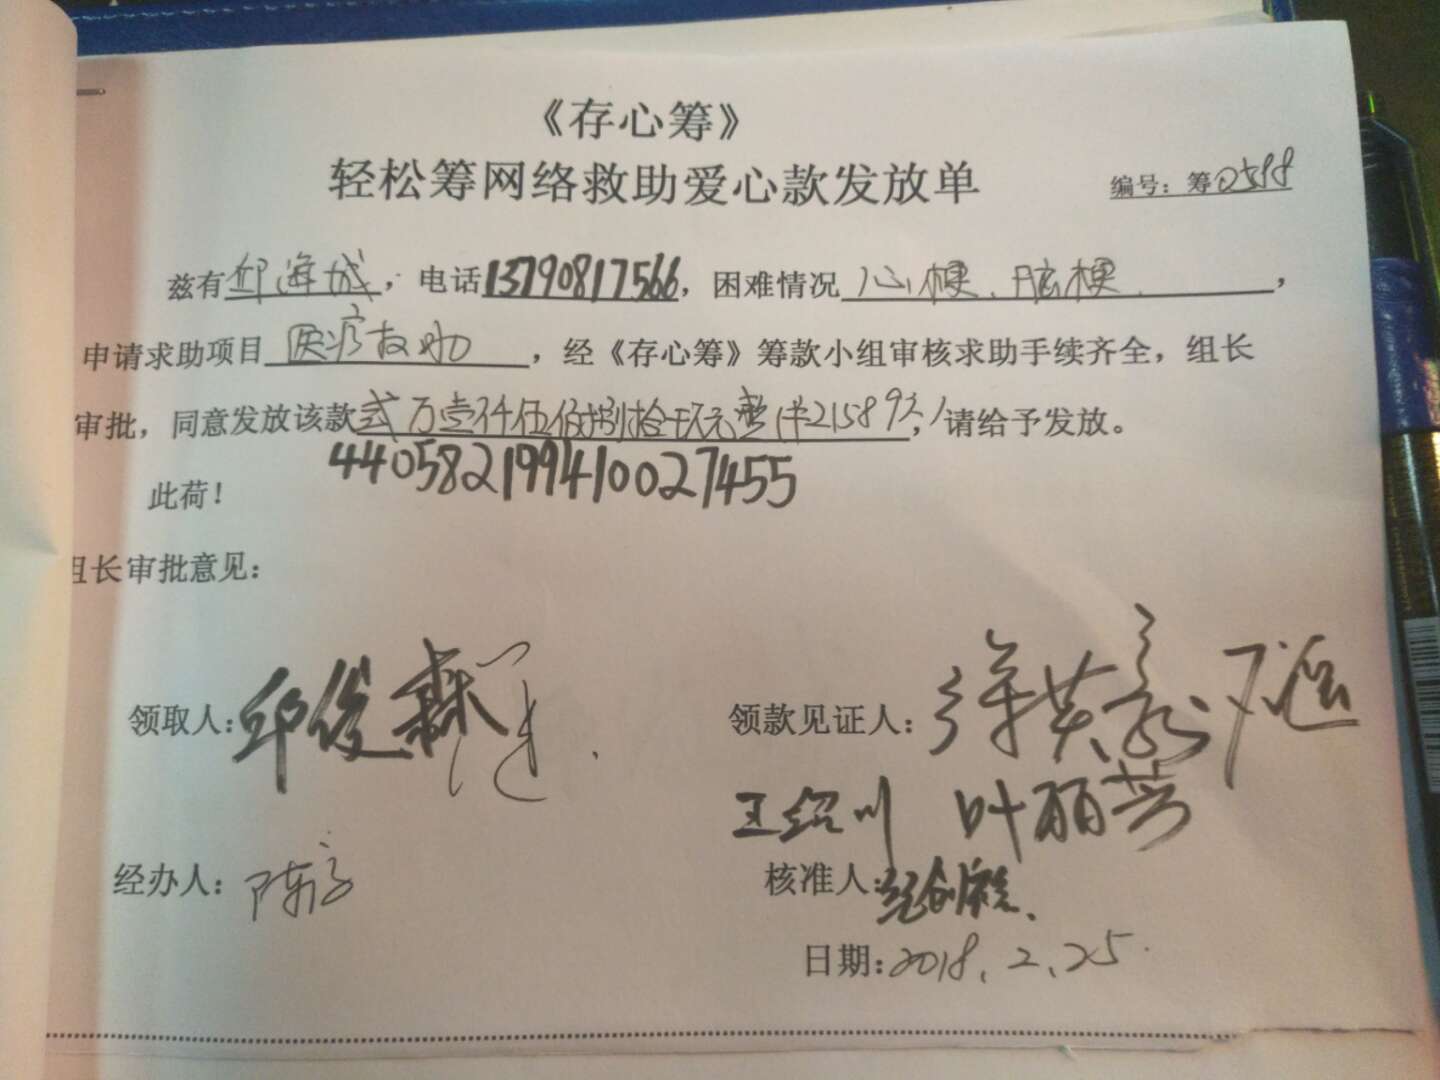 《存心筹》
轻松筹网络救助爱心款发放单
编号：筹0588
兹有邱海城，电话13790817566，困难情况心梗、脑梗，
申请求助项目医疗救助，经《存心筹》筹款小组审核求助手续齐全，组长
审批，同意发放该款贰万壹仟伍佰捌拾玖元整(¥21589元)，请给予发放。
440582199410027455
此荷！
组长审批意见：
领取人：邱俊霖
领款见证人：
王绍川 叶丽芸
经办人：陈
核准人：
日期：2018.2.25.